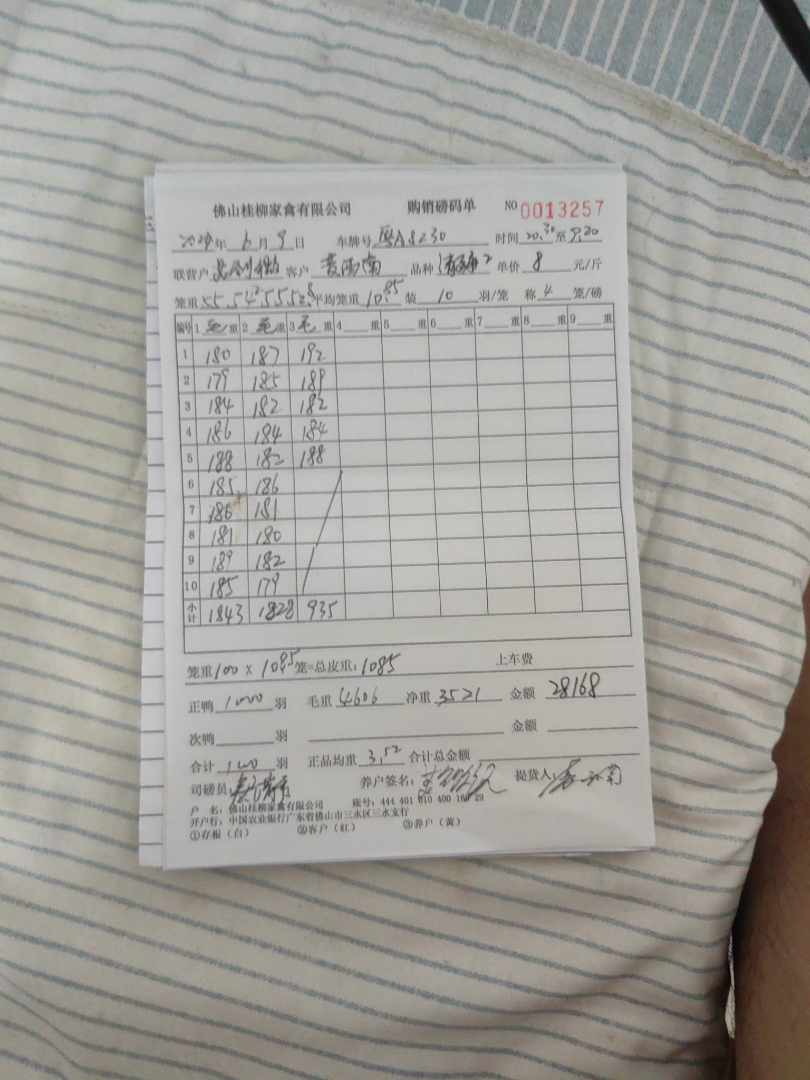 佛山桂柳家禽有限公司 购销磅码单 NO 0013257
2024年 6月 9日 车牌号 A8230 时间 20.30至9.20
联营户 客户 品种 单价 8 元/斤
笼重 55 54.2 55 52.8 平均笼重 10.85 装 10 羽/笼 称 4 笼/磅
编号 1 毛重 2 毛重 3 毛重 4 重 5 重 6 重 7 重 8 重 9 重
1 180 187 192
2 179 185 189
3 184 182 182
4 186 184 184
5 188 182 188
6 185 186
7 186 181
8 181 180
9 189 182
10 185 179
小计 1843 1828 935
笼重 100 X 10.85 笼=总皮重: 1085 上车费
正鸭 1000 羽 毛重 4606 净重 3521 金额 28168
次鸭 羽 金额
合计 1000 羽 正品均重 3.52 合计总金额
司磅员 养户签名: 提货人:
户 名: 佛山桂柳家禽有限公司 账号: 444 401 010 400 29
开户行: 中国农业银行广东省佛山市三水区三水支行
①存根(白) ②客户(红) ③养户(黄)